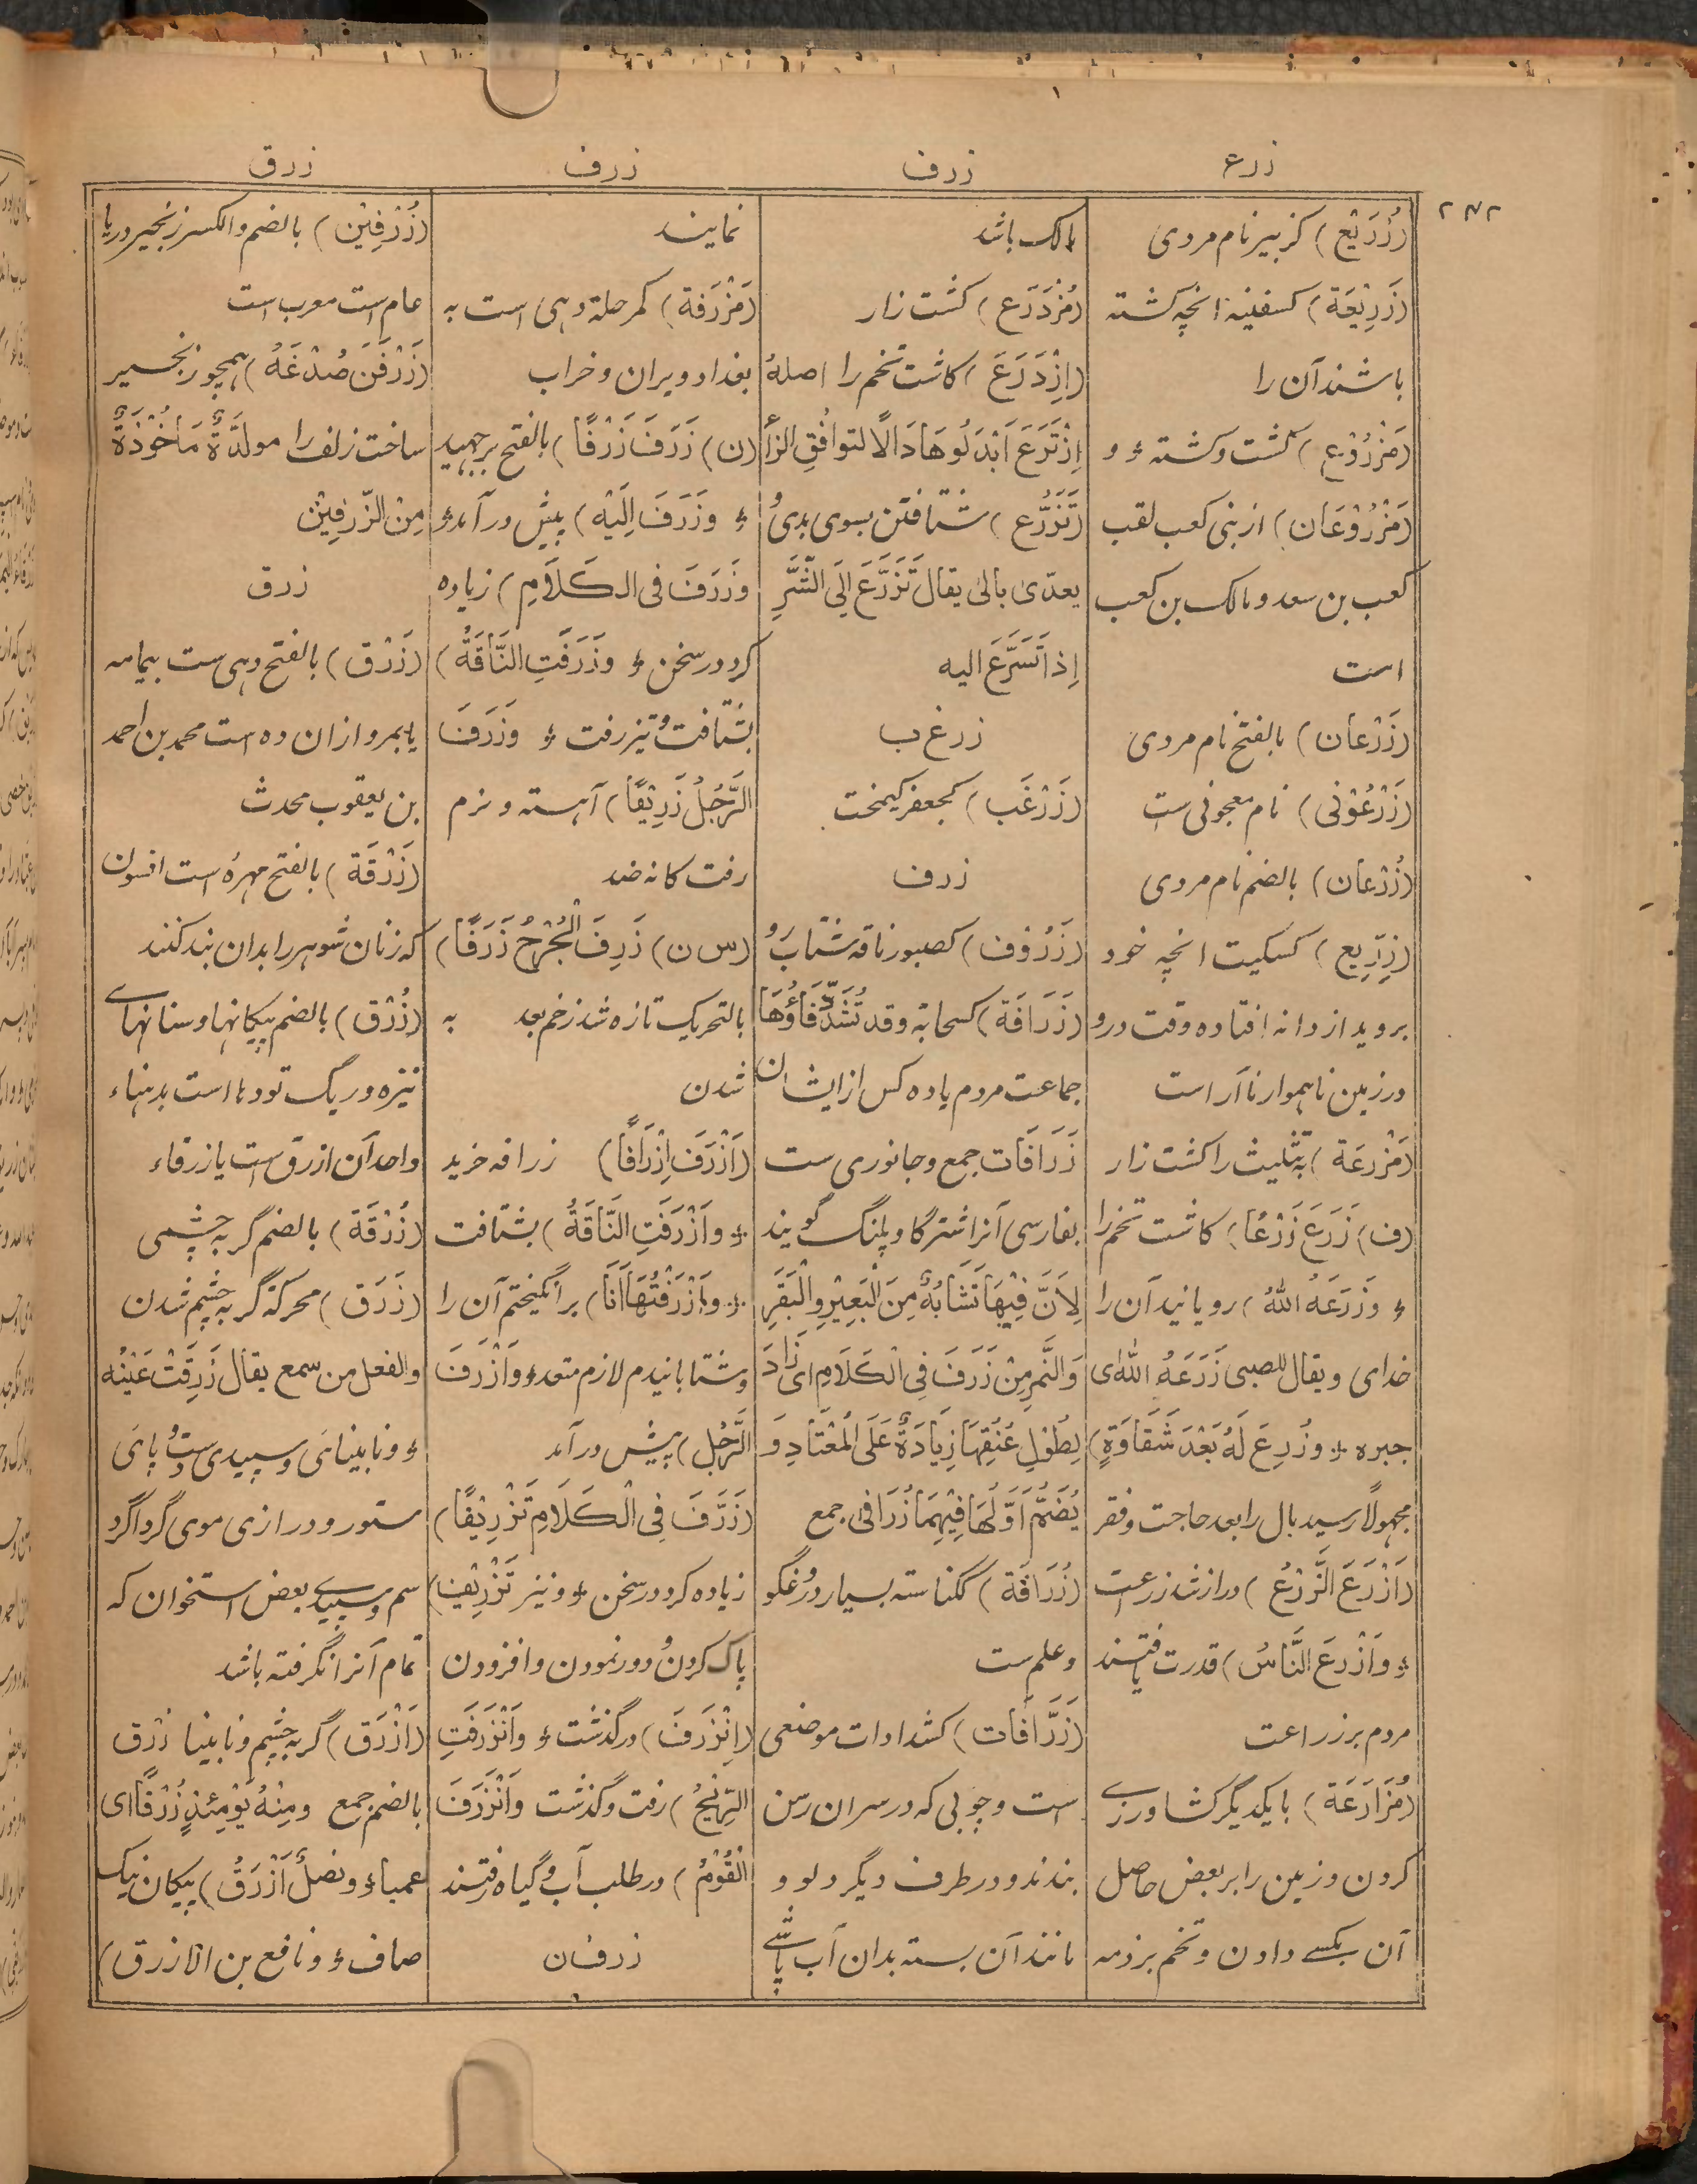 زرع
زرف
زرف
زرق
(زُرَيْع) كزبير نام مردى
(زَرِيْعَة) كسفينة انچه كشته
باشند آن را
(مَزْرُوْع) كشت و كشته ؤ و
(مَزْرُوْعَان) از بنى كعب لقب
كعب بن سعد و مالك بن كعب
است
(زَرْعَان) بالفتح نام مردى
(زَرْعُوْنى) نام معجونى ست
(زُرْعَان) بالضم نام مردى
(زِرِّيع) كسكيت انچه خود
برويد از دانه افتاده وقت درو
در زمين ناهموار نا آراست
(مَزْرعَة) بتثليث را كشت زار
(ف) زَرَعَ زَرْعًا) كاشت تخم را
ؤ وزَرَعَهُ اللّٰهُ) رويانيد آن را
خداى ويقال للصبى زَرَعَهُ اللّٰه اى
جبره ؤ وزُرِعَ لَهُ بَعْدَ شَقَاوَةٍ)
مجهولًا رسيد بال را بعد حاجت وفقر
(اَزْرَعَ الزَّرْعُ) دراز شد زراعت
ؤ واَزْرَعَ النَّاسُ) قدرت يافتند
مردم بر زراعت
(مُزَارَعَة) با يكديگر كشاورزے
كردن و زمين را بر بعض حاصل
آن بكسے دادن و تخم بر ذمه
مالك باشد
(مُزْدَرَع) كشت زار
(اِزْدَرَعَ) كاشت تخم را اصلهٗ
اِزْتَرَعَ اَبْدَلُوهَا دَالًا لتوافُقِ الزأ
(تَزَرُّع) شتافتن بسوى بدىُ
يعدّى بالىٰ يقال تَزَرَّعَ اِلَى الشَّرِّ
اِذا تَسَرَّعَ اليه
زرغ ب
(زَرْغَب) كجعفر كيمخت
زرف
(زَرُوْف) كصبور ناقه شتاب رو
(زَرَافَة) كسحابة وقد تُشَدُّ فَاؤُهَا
جماعت مردم يا ده كس از ايشان
زَرَافَات جمع و جانورى ست
بفارسى آنرا شتر گاو پلنگ گويند
لِاَنَّ فِيْهَا تَشَابُهٌ مِنَ الْبَعِيْرِ والْبَقَرِ
وَالنَّمِرِ مِنْ زَرَفَ فِى الْكَلَامِ اى زَادَ
لِطُوْلِ عُنُقِهَا زِيَادَةٌ عَلَى الْمُعْتَادِ وَ
يُضَمُّ اَوَّلُهَا فِيْهِمَا زُرَافى جمع
(زُرَافَة) ككناسته بسيار دروغگو
و علم ست
(زَرَّافَات) كشدادات موضعى
است و چوبى كه در سر ان رسن
بندند و در طرف ديگر دلو و
مانند آن بسته بدان آب پاشے
نمايند
(مَزْرَفَة) كمرحلة دهى است به
بغداد ويران و خراب
(ن) زَرَفَ زَرْفًا) بالفتح برجهيد
ؤ وزَرَفَ اِلَيْه) پيش در آمد ؤ
وزَرَفَ فى الـكَلَامِ) زياده
كرد در سخن ؤ وزَرَفَتِ النَّاقَةُ)
بشتافت و تيز رفت ؤ وزَرَفَ
الرَّجُلُ زَرِيْفًا) آهسته و نرم
رفت كانه ضد
(س ن) زَرِفَ الْجُرْحُ زَرَفًا)
بالتحريك تازه شد زخم بعد به
شدن
(اَزْرَفَ اِزْرَافًا) زرافه خريد
ؤ واَزْرَفَتِ النَّاقَةُ) بشتافت
ؤ واَزْرَفْتُهَا اَنَا) برانگيختم آن را
و شتابانيدم لازم متعد ؤ واَزْرَفَ
الرَّجُل) پيش در آمد
(زَرَّفَ فِى الْـكَلَامِ تَزْرِيْفًا)
زياده كرد در سخن ؤ و نيز تَزْرِيْف)
پاك كردن و دور نمودن و افزودن
(اِنْزَرَفَ) درگذشت ؤ وَانْزَرَفَتِ
الرِّيْحُ) رفت و گذشت وَانْزَرَفَ
الْقَوْمُ) در طلب آب و گياه رفتند
زرفن
(زُرْفِيْن) بالضم والكسر زنجير در يا
عام است معرب است
(زَرْفَنَ صُدْغَهُ) همچو زنجير
ساخت زلف را مولدَّةٌ مَاخُوْذَةٌ
مِنَ الزّرْفِيْن
زرق
(زَرْق) بالفتح دهى ست بيمامه
يا بمرو ازان ده است محمد بن احمد
بن يعقوب محدث
(زَرْقَة) بالفتح مهرهٔ است افسون
كه زنان شوهر را بدان بند كنند
(زُرْق) بالضم پيكانها و سنانهاے
نيزه و ريگ توده ها است بدهناء
واحد آن ازرق ست يا زرقاء
(زُرْقَة) بالضم گربه چشمى
(زَرَق) محركة گربه چشم شدن
والفعل من سمع يقال زَرِقَتْ عَيْنُه
ؤ و نابينائى و سپيدى دست و پاى
ستور و درازى موى گرداگرد
سم و سپيدے بعض استخوان كه
تمام آنرا نگرفته باشد
(اَزْرَق) گربه چشم و نابينا زُرْق
بالضم جمع ومِنْهُ يَوْمَئِذٍ زُرْقًا اى
عمياء ؤ ونصلٌ اَزْرَقُ) پيكان نيك
صاف ؤ و نافع بن الازرق)